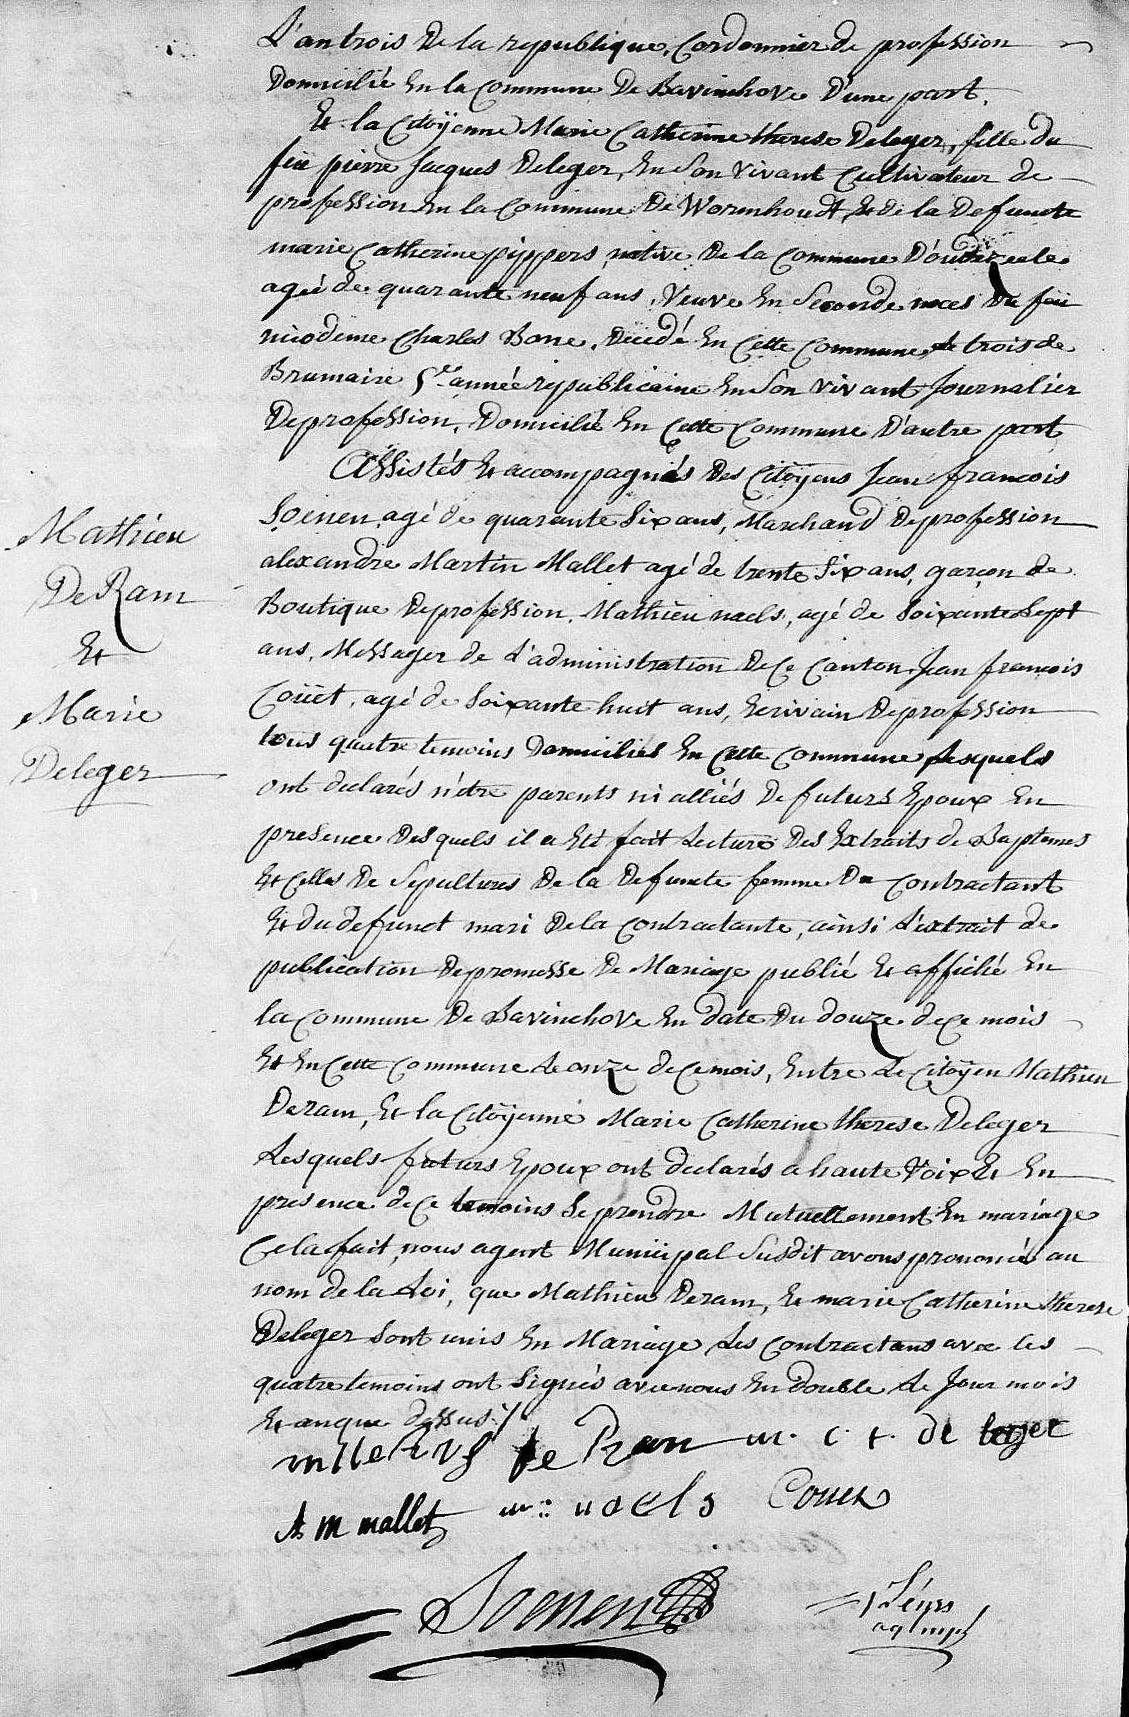 L'an trois De la republique, Cordonnier de profession
Domicilié En la Commune De Bavinchove D'une part.
Et la Citoÿenne Marie Catherine therese Deleger, fille du
feu pierre Jacques Deleger, En Son vivant Cultivateur de
profession En la Commune De Wormhoudt, Et de la Defuncte
marie Catherine pÿppers, native De la Commune D'oudezeele
agée de quarante neuf ans, Veuve En Seconde noces Du feü
nicodeme Charles Bone, Decedé En Cette Commune, Le trois de
Brumaire 5.e année republicaine En Son vivant Journalier
De profession, Domicilié En Cette Commune D'autre part
Assistés Et accompagnés Des Citoÿens Jean francois
Soenen, agé de quarante Six ans, Marchand De profession
alexandre Martin Mallet agé de trente Six ans, garçon de
Boutique De profession, Mathieu naels, agé de Soixante Sept
ans, Messager de L'administration De Ce Canton, Jean francois
Coüet, agé de Soixante huit ans, Ecrivain De profession
tous quatre temoins Domiciliés En Cette Commune Lesquels
ont declarés n'etre parents ni alliés De futurs Epoux En
presence Desquels il a Eté fait Lecture Des Extraits de Baptemes
Et Celles De Sepultures De la Defuncte femme Du Contractant
Et du defunct mari De la Contractante, ainsi L'extrait de
publication De promesse De Mariage publié Et affiché En
la Commune De Bavinchove En date Du douze de Ce mois
Et En Cette Commune Le onze de Ce mois, Entre Le Citoÿen Mathieu
Deram, Et la Citoÿenne Marie Catherine therese Deleger
Lesquels futurs Epoux ont declarés a haute Voix Et En
presence de Ce temoins Se prendre Mutuellement En mariage
Cela fait, nous agent Municipal Susdit avons prononcés au
nom de la Loi, que Mathieu Deram, Et marie Catherine therese
Deleger Sont unis En Mariage Les Contractans avec les
quatre temoins ont Signés avec nous En double Le Jour mois
Et an que dessus ./.
Mathieu
De Ram
Et
Marie
Deleger
de Ram m. c. t. de leger
A m mallet m: naels Couet
Soenen